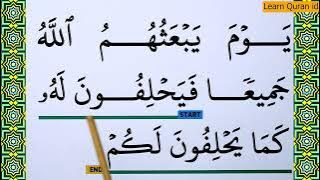 Learn Quran id
يَوۡمَ يَبۡعَثُهُمُ ٱللَّهُ
جَمِيعٗا فَيَحۡلِفُونَ لَهُۥ
START
كَمَا يَحۡلِفُونَ لَكُمۡ
END